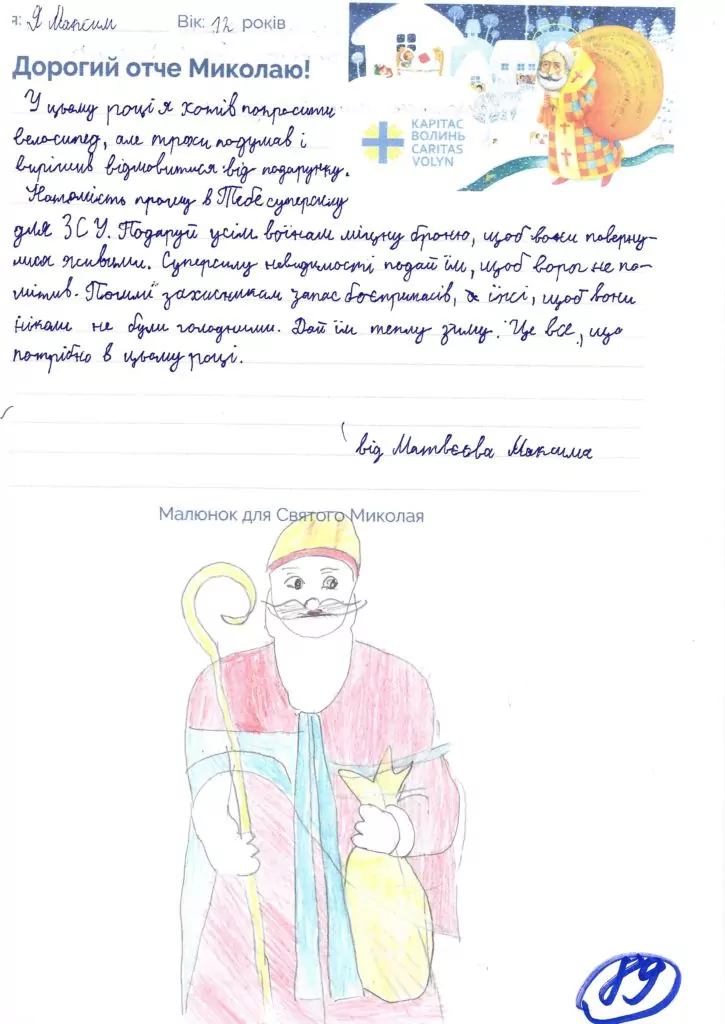 я: Я Максим Вік: 12 років
Дорогий отче Миколаю!
КАРІТАС
ВОЛИНЬ
CARITAS
VOLYN
У цьому році я хотів попросити
велосипед, але трохи подумав і
вирішив відмовитися від подарунку.
Натомість прошу в Тебе суперсилу
для ЗСУ. Подаруй усім воїнам міцну броню, щоб вони поверну-
лися живими. Суперсилу невидимості подай їм, щоб ворог не по-
мітив. Пошли захисникам запас боєприпасів, їжі, щоб вони
ніколи не були голодними. Дай їм теплу зиму. Це все, що
потрібно в цьому році.
від Матвєєва Максима
Малюнок для Святого Миколая
89